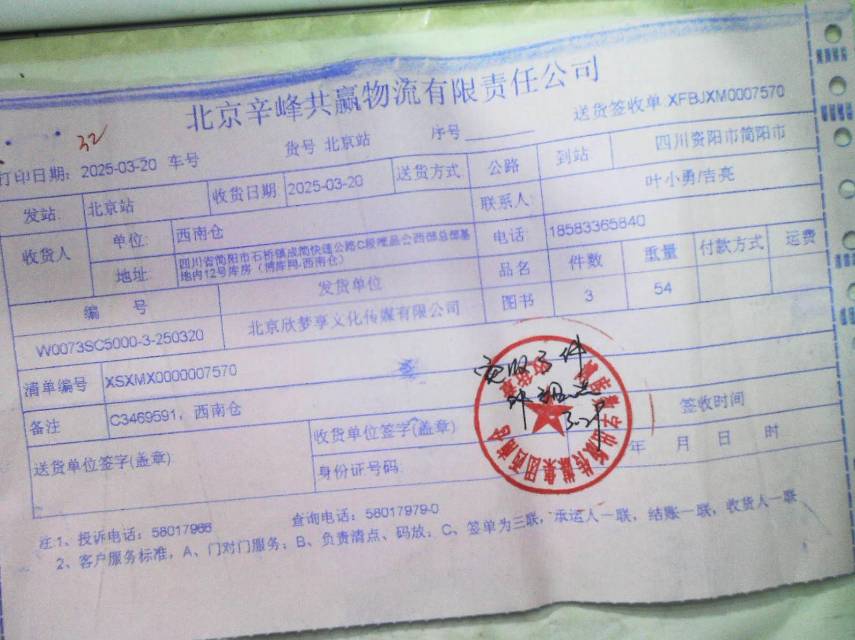 北京辛峰共赢物流有限责任公司
送货签收单 XFBJXM0007570
32
打印日期: 2025-03-20 车号 货号 北京站 序号
发站: 北京站 收货日期 2025-03-20 送货方式 公路 到站 四川资阳市简阳市
收货人 单位: 西南仓 联系人: 叶小勇/吉亮
地址: 四川省简阳市石桥镇成简快速公路C段唯品会西部总部基地内12号库房(博库网-西南仓) 电话: 18583365840
编 号 发货单位 品名 件数 重量 付款方式 运费
W0073SC5000-3-250320 北京欣梦享文化传媒有限公司 图书 3 54
清单编号 XSXMX0000007570
实收3件
3.29
备注 C3469591, 西南仓
签收时间
送货单位签字(盖章) 收货单位签字(盖章)
身份证号码:
年 月 日 时
注1、投诉电话: 58017966 查询电话: 58017979-0
2、客户服务标准, A、门对门服务; B、负责清点、码放; C、签单为三联, 承运人一联, 结账一联, 收货人一联